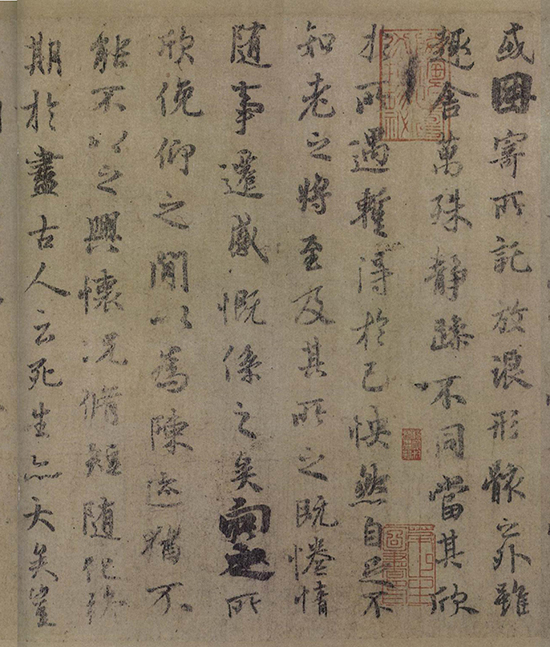 或因寄所託放浪形骸之外雖
趣舍萬殊静躁不同當其欣
於所遇暫得於己怏然自足不
知老之將至及其所之既惓情
随事遷感慨係之矣向之所
欣俛仰之閒以為陳迹猶不
能不以之興懷況脩短随化終
期於盡古人云死生亦大矣豈